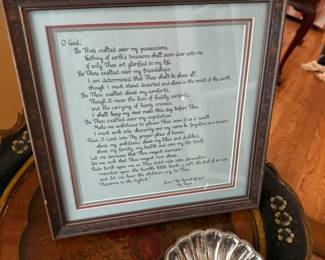 O God,
Be Thou exalted over my possessions.
Nothing of earth's treasures shall seem dear unto me
if only Thou art glorified in my life.
Be Thou exalted over my friendships.
I am determined that Thou shalt be above all,
though I must stand deserted and alone in the midst of the earth.
Be Thou exalted above my comforts.
Though it mean the loss of bodily comforts
and the carrying of heavy crosses
I shall keep my vow made this day before Thee.
Be Thou exalted over my reputation.
Make me ambitious to please Thee even if as a result
I must sink into obscurity and my name be forgotten as a dream.
Rise, O Lord, into Thy proper place of honor,
above my ambitions, above my likes and dislikes,
above my family, my health and even my life itself.
Let me decrease that Thou mayest increase;
Let me sink that Thou mayest rise above.
Ride forth upon me as Thou didst ride into Jerusalem
mounted upon the humble little beast, a colt, the foal of an ass,
and let me hear the children cry to Thee,
"Hosanna in the highest."
from "The Pursuit of God"
by Tozer